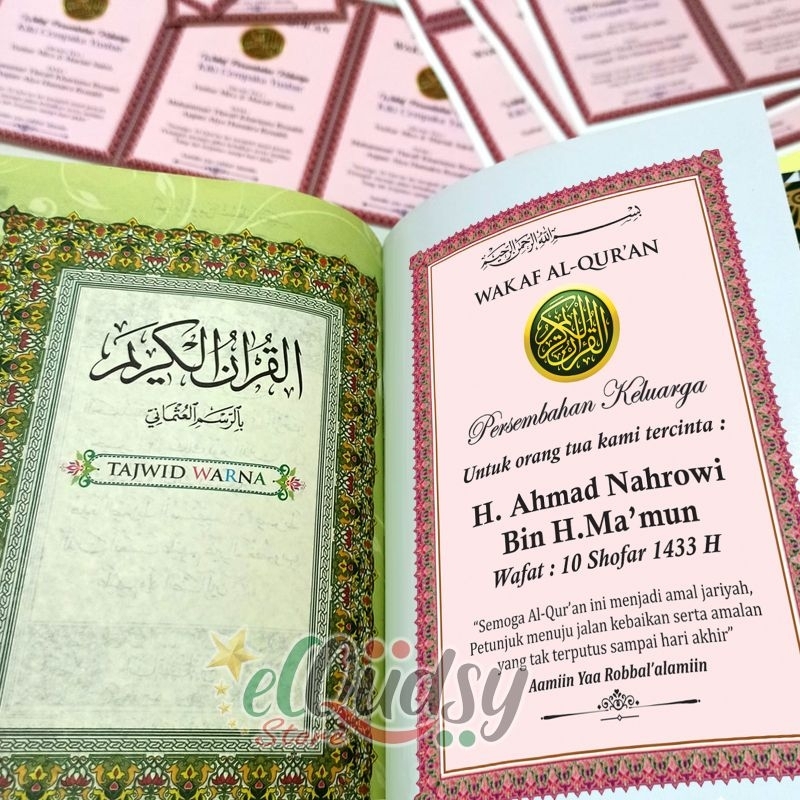 القرآن الكريم
بالرسم العثماني
TAJWID WARNA
بسم الله الرحمن الرحيم
WAKAF AL-QUR'AN
القرآن الكريم
Persembahan Keluarga
Untuk orang tua kami tercinta :
H. Ahmad Nahrowi
Bin H.Ma'mun
Wafat : 10 Shofar 1433 H
“Semoga Al-Qur'an ini menjadi amal jariyah,
Petunjuk menuju jalan kebaikan serta amalan
yang tak terputus sampai hari akhir”
Aamiin Yaa Robbal'alamiin
elQudsy
Store